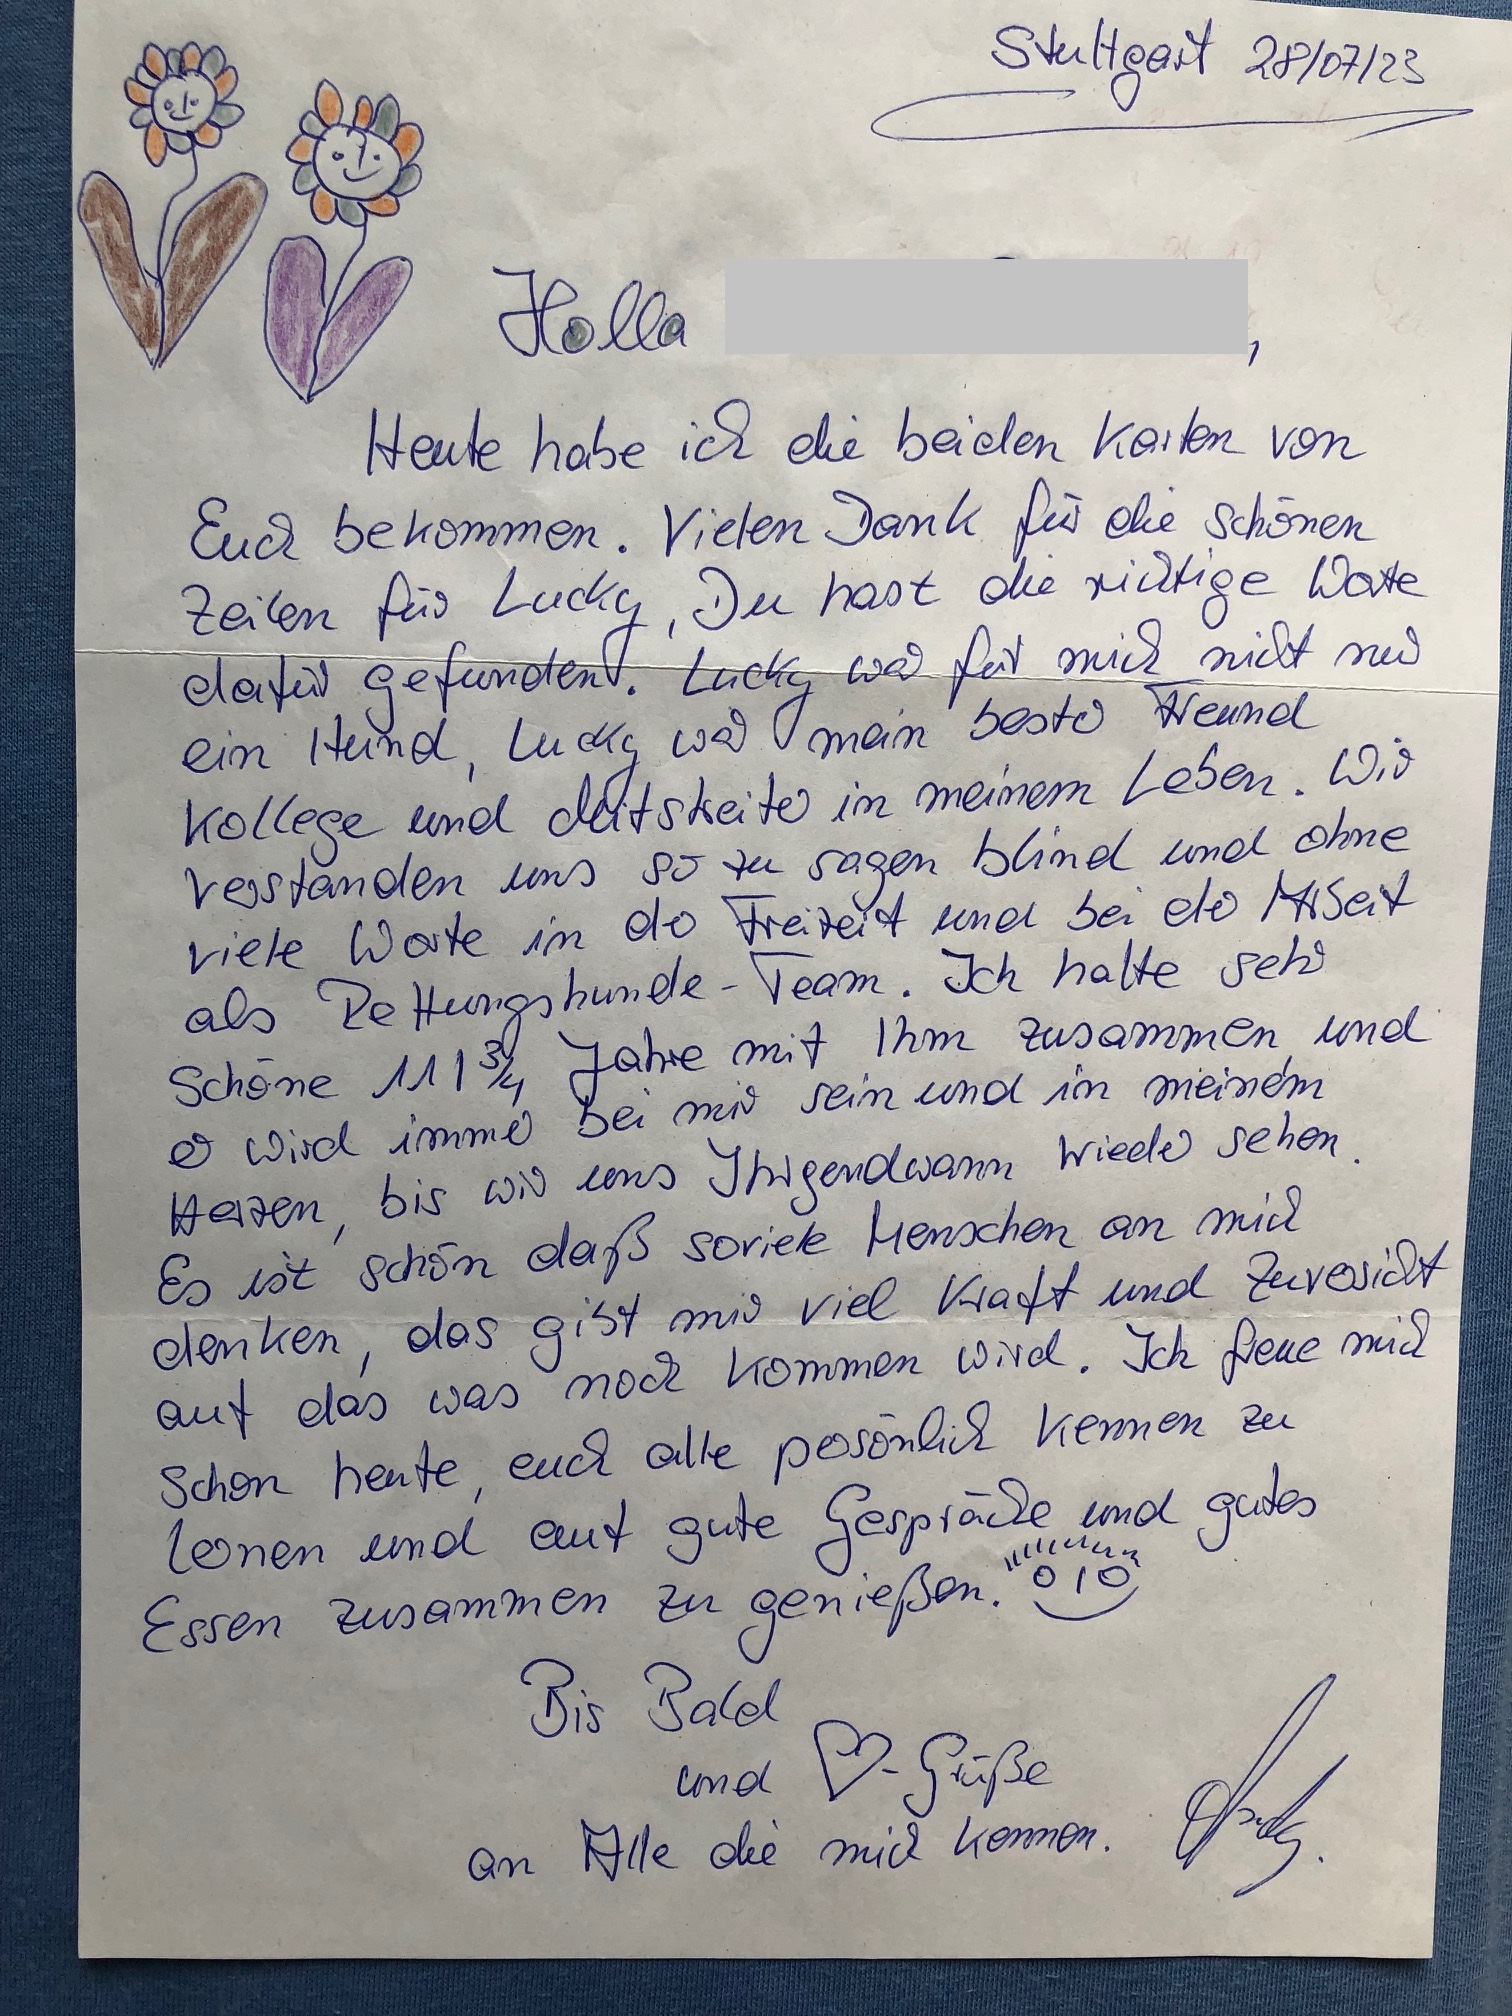 Stuttgart 28/07/23
Holla ,
Heute habe ich die beiden Karten von
Euch bekommen. Vielen Dank für die schönen
Zeilen für Lucky, Du hast die richtige Worte
dafür gefunden. Lucky war für mich nicht nur
ein Hund, Lucky war mein bester Freund
Kollege und Mitstreiter in meinem Leben. Wir
verstanden uns so zu sagen blind und ohne
viele Worte in der Freizeit und bei der Arbeit
als Rettungshunde-Team. Ich hatte sehr
schöne 11 3/4 Jahre mit Ihm zusammen und
er wird immer bei mir sein und in meinem
Herzen, bis wir uns Ihrgendwann wieder sehen.
Es ist schön daß soviele Menschen an mich
denken, das gibt mir viel Kraft und Zuversicht
auf das was noch kommen wird. Ich freue mich
schon heute, euch alle persönlich kennen zu
lernen und auf gute Gespräche und gutes
Essen zusammen zu genießen.
Bis Bald
und ♡-Grüße
an Alle die mich kennen.